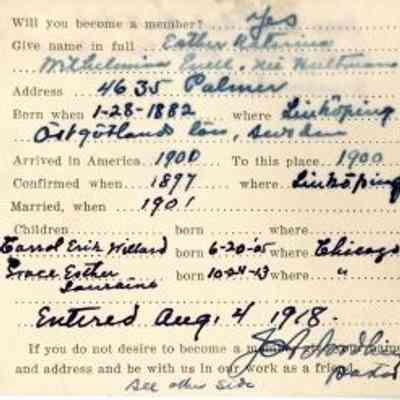 Will you become a member? Yes
Give name in full Esther Katerina
Wilhelmina Enell, née Hultman
Address 4635 Palmer
Born when 1-28-1882 where Linköping
Östgötlands län, Sweden
Arrived in America 1900 To this place 1900
Confirmed when 1897 where Linköping
Married, when 1901
Children born where
Carrol Erik Willard born 6-20-05 where Chicago
Grace Esther born 10-24-13 where "
Louraine
Entered Aug. 4 1918.
If you do not desire to become a
and address and be with us in our work as a
Pastor
See other side